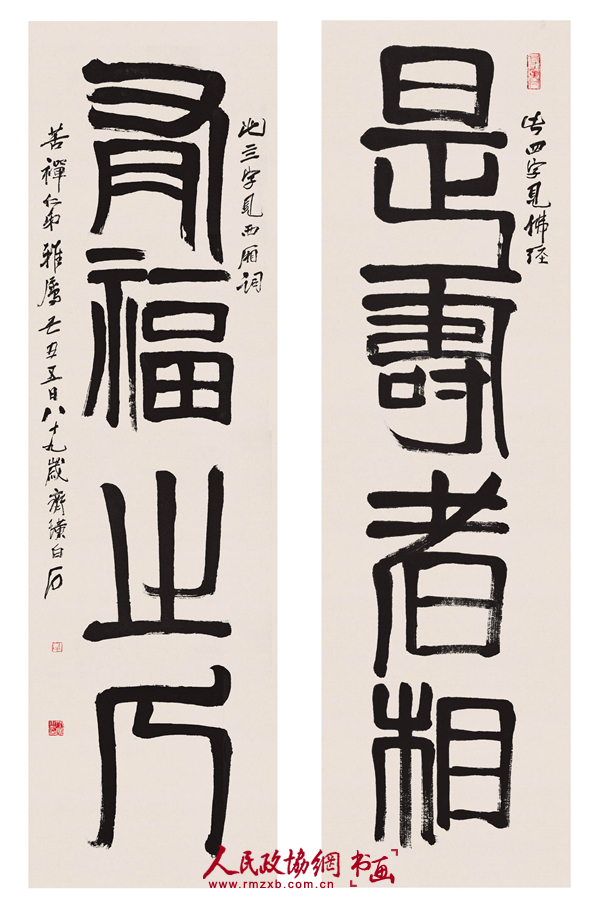 此四字見佛經
是壽者相
此三字見西廂詞
有福之人
苦禪仁弟雅屬 己丑五日八十九歲齊璜白石
人民政協網 书画
www.rmzxb.com.cn